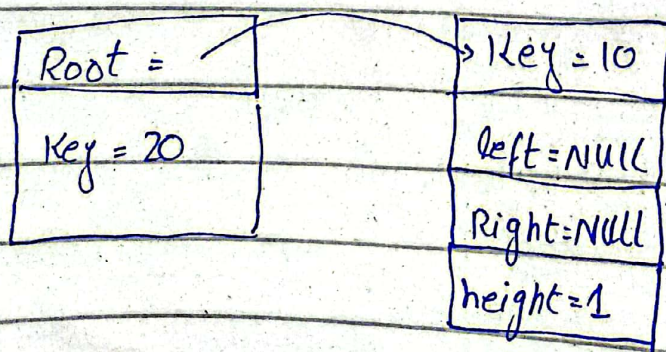 Root =
Key = 20
Key = 10
left = NULL
Right = NULL
height = 1